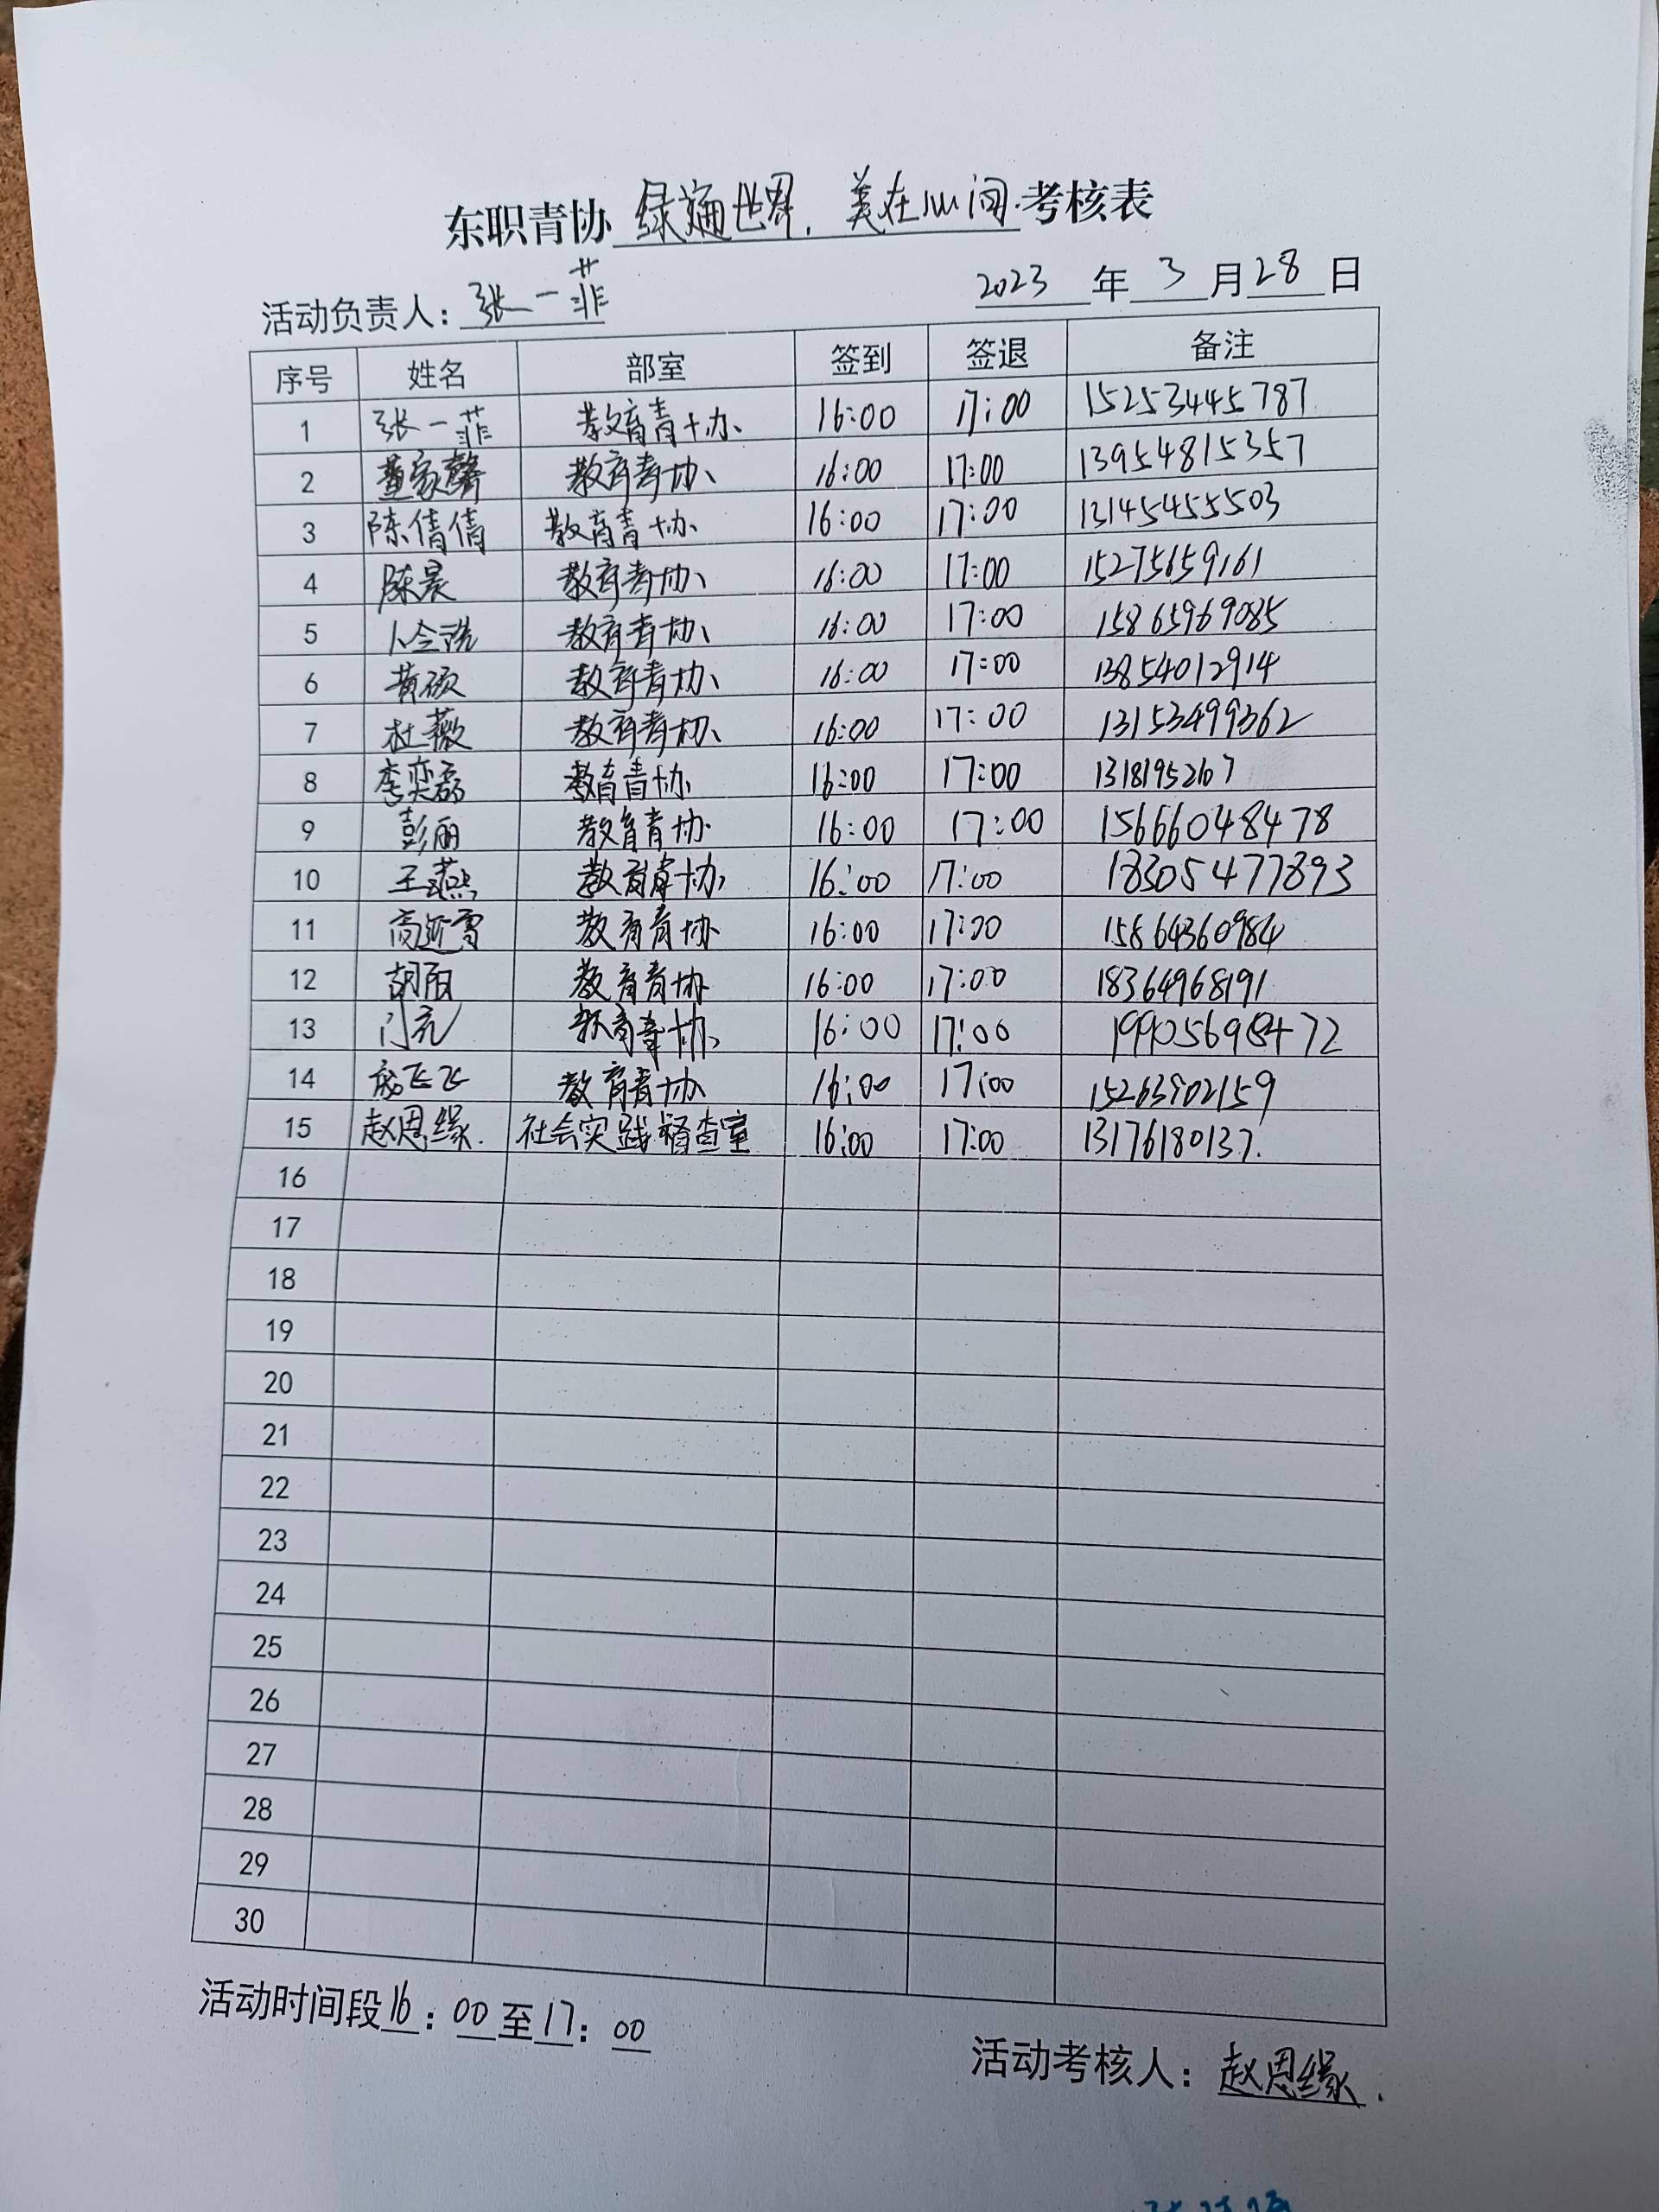 东职青协 绿遍世界，美在心间.考核表
活动负责人：张一菲 2023 年 3 月 28 日
序号 姓名 部室 签到 签退 备注
1 张一菲 教育青协 16:00 17:00 15253445787
2 董家馨 教育青协 16:00 17:00 13954815357
3 陈倩倩 教育青协 16:00 17:00 13145455503
4 陈晨 教育青协 16:00 17:00 15275659161
5 教育青协 16:00 17:00 15865969085
6 黄硕 教育青协 16:00 17:00 13854012914
7 杜薇 教育青协 16:00 17:00 13153499362
8 李奕磊 教育青协 16:00 17:00
9 彭丽 教育青协 16:00 17:00 15666048478
10 王燕 教育青协 16:00 17:00 18305477893
11 教育青协 16:00 17:00 15864360984
12 教育青协 16:00 17:00 18364968191
13 教育青协 16:00 17:00
14 飞飞 教育青协 16:00 17:00 15263902159
15 赵恩缘. 社会实践督查室 16:00 17:00 13176180137.
16
17
18
19
20
21
22
23
24
25
26
27
28
29
30
活动时间段16：00至17：00
活动考核人：赵恩缘.